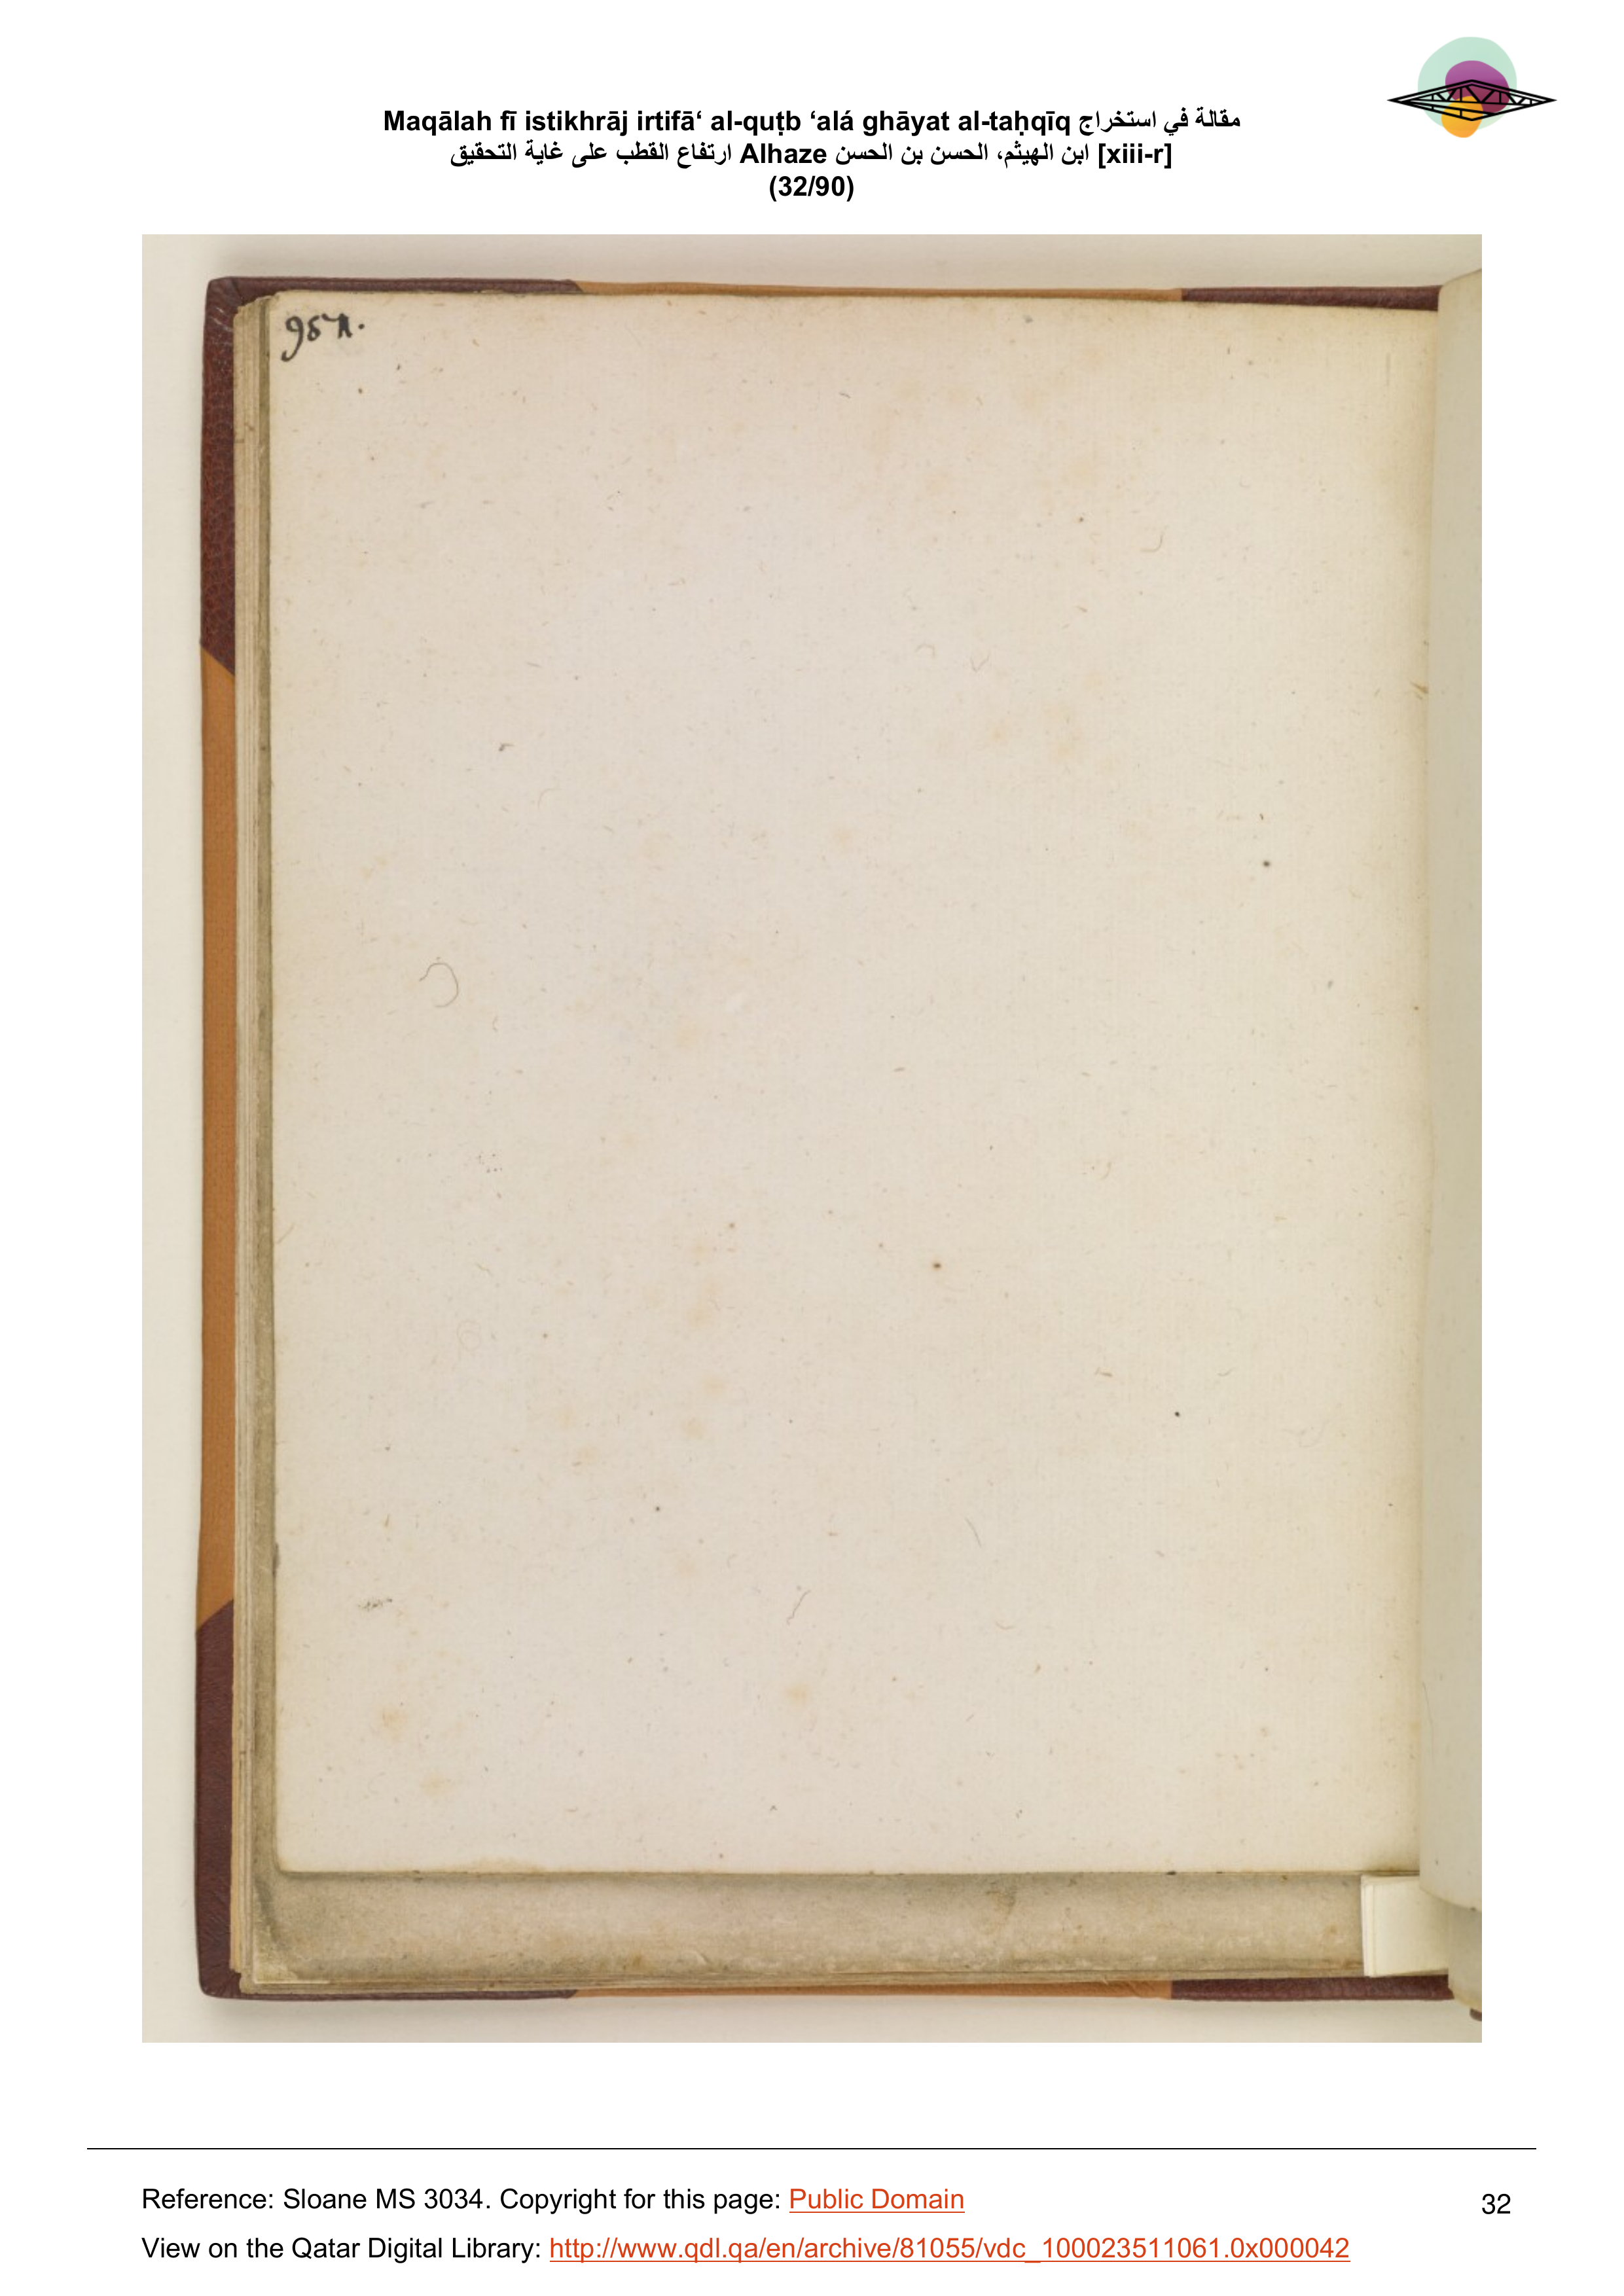 Maqālah fī istikhrāj irtifā‘ al-quṭb ‘alá ghāyat al-taḥqīq مقالة في استخراج
ارتفاع القطب على غاية التحقيق Alhaze ابن الهيثم، الحسن بن الحسن [xiii-r]
(32/90)
Reference: Sloane MS 3034. Copyright for this page: Public Domain
32
View on the Qatar Digital Library: http://www.qdl.qa/en/archive/81055/vdc_100023511061.0x000042